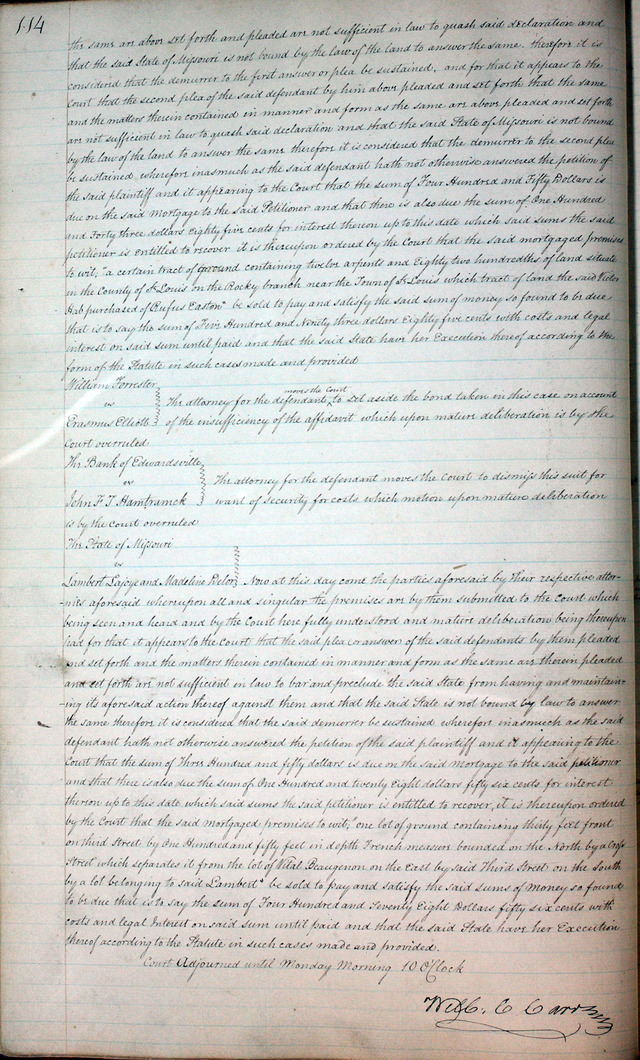 114
the same are above set forth and pleaded are not sufficient in law to quash said declaration and
that the said State of Missouri is not bound by the law of the land to answer the same. therefore it is
considered that the demurrer to the first answer or plea be sustained, and for that it appears to the
Court that the second plea of the said defendant by him above pleaded and set forth that the same
and the matters therein contained in manner and form as the same are above pleaded and set forth
are not sufficient in law to quash said declaration and that the said State of Missouri is not bound
by the law of the land to answer the same therefore it is considered that the demurrer to the second plea
be sustained, wherefore inasmuch as the said defendant hath not otherwise answered the petition of
the said plaintiff and it appearing to the Court that the sum of Four Hundred and Fifty Dollars is
due on the said Mortgage to the said Petitioner and that there is also due the sum of One Hundred
and Forty three dollars Eighty five cents for interest thereon up to this date which said sums the said
petitioner is entitled to recover it is thereupon ordered by the Court that the said mortgaged premises
to wit, "a certain tract of ground containing twelve arpents and Eighty two hundredths of land situate
in the County of St Louis on the Rocky branch near the Town of St Louis which tract of land the said Victor
Hab purchased of Rufus Easton" be sold to pay and satisfy the said sum of money so found to be due
that is to say the sum of Five Hundred and Ninety three dollars Eighty five cents with costs and legal
interest on said sum until paid and that the said State have her Execution thereof according to the
form of the Statute in such cases made and provided
William Forrester
vs
moves the Court
The attorney for the defendant, to set aside the bond taken in this case on account
Erasmus Elliott of the insufficiency of the affidavit which upon mature deliberation is by the
Court overruled
The Bank of Edwardsville
vs The attorney for the defendant moves the Court to dismiss this suit for
John F. T. Hamtramck want of security for costs which motion upon mature deliberation
is by the court overruled
The State of Missouri
vs
Lambert Lajoye and Madeline Delor Now at this day come the parties aforesaid by their respective attor-
nies aforesaid whereupon all and singular the premises are by them submitted to the Court which
being seen and heard and by the Court here fully understood and mature deliberation being thereupon
had for that it appears to the Court that the said plea or answer of the said defendants by them pleaded
and set forth and the matters therein contained in manner and form as the same are therein pleaded
and set forth are not sufficient in law to bar and preclude the said State from having and maintain-
ing its aforesaid action thereof against them and that the said State is not bound by law to answer
the same therefore it is considered that the said demurrer be sustained wherefore inasmuch as the said
defendant hath not otherwise answered the petition of the said plaintiff and it appearing to the
Court that the sum of Three Hundred and fifty dollars is due on the said Mortgage to the said petitioner
and that there is also due the sum of One Hundred and twenty Eight dollars fifty six cents for interest
thereon up to this date which said sums the said petitioner is entitled to recover, it is thereupon ordered
by the Court that the said mortgaged premises to wit, "one lot of ground containing thirty feet front
on third Street by One Hundred and fifty feet in depth French measure bounded on the North by a Cross
Street which separates it from the lot of Vital Beaugenon on the East by said Third Street on the South
by a lot belonging to said Lambert" be sold to pay and satisfy the said sums of Money so found
to be due that is to say the sum of Four Hundred and Seventy Eight Dollars fifty six cents with
costs and legal Interest on said sum until paid and that the said State have her Execution
thereof according to the Statute in such cases made and provided.
Court Adjourned until Monday Morning 10 O'Clock
Will. C Carr